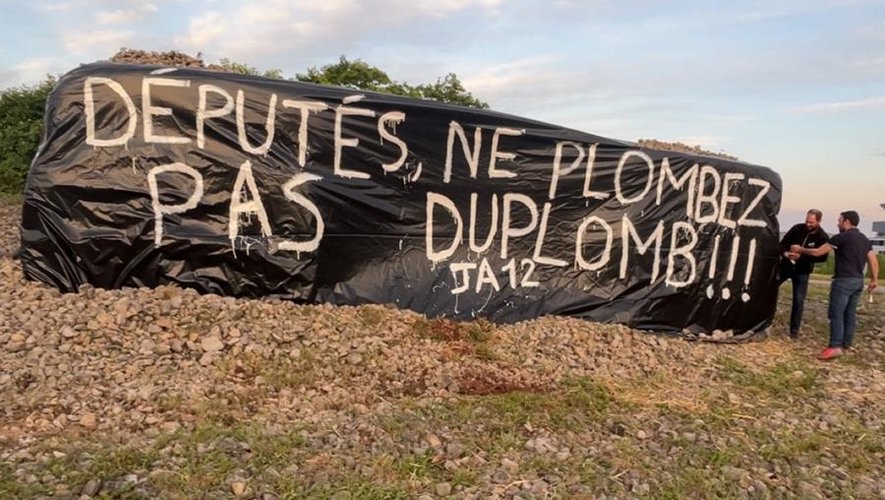 DÉPUTÉS, NE PLOMBEZ
PAS DUPLOMB!!!
JA12